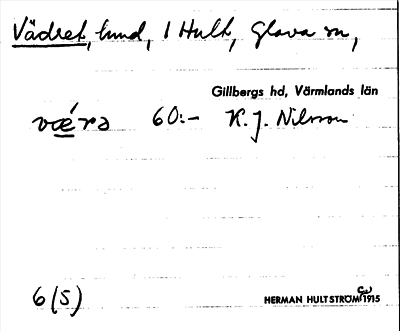 Vädret, lund, 1 Hult, Glava sn,
Gillbergs hd, Värmlands län
vǽrə 60:- K. J. Nilsson
6(5)
HERMAN HULTSTRÖM 1915